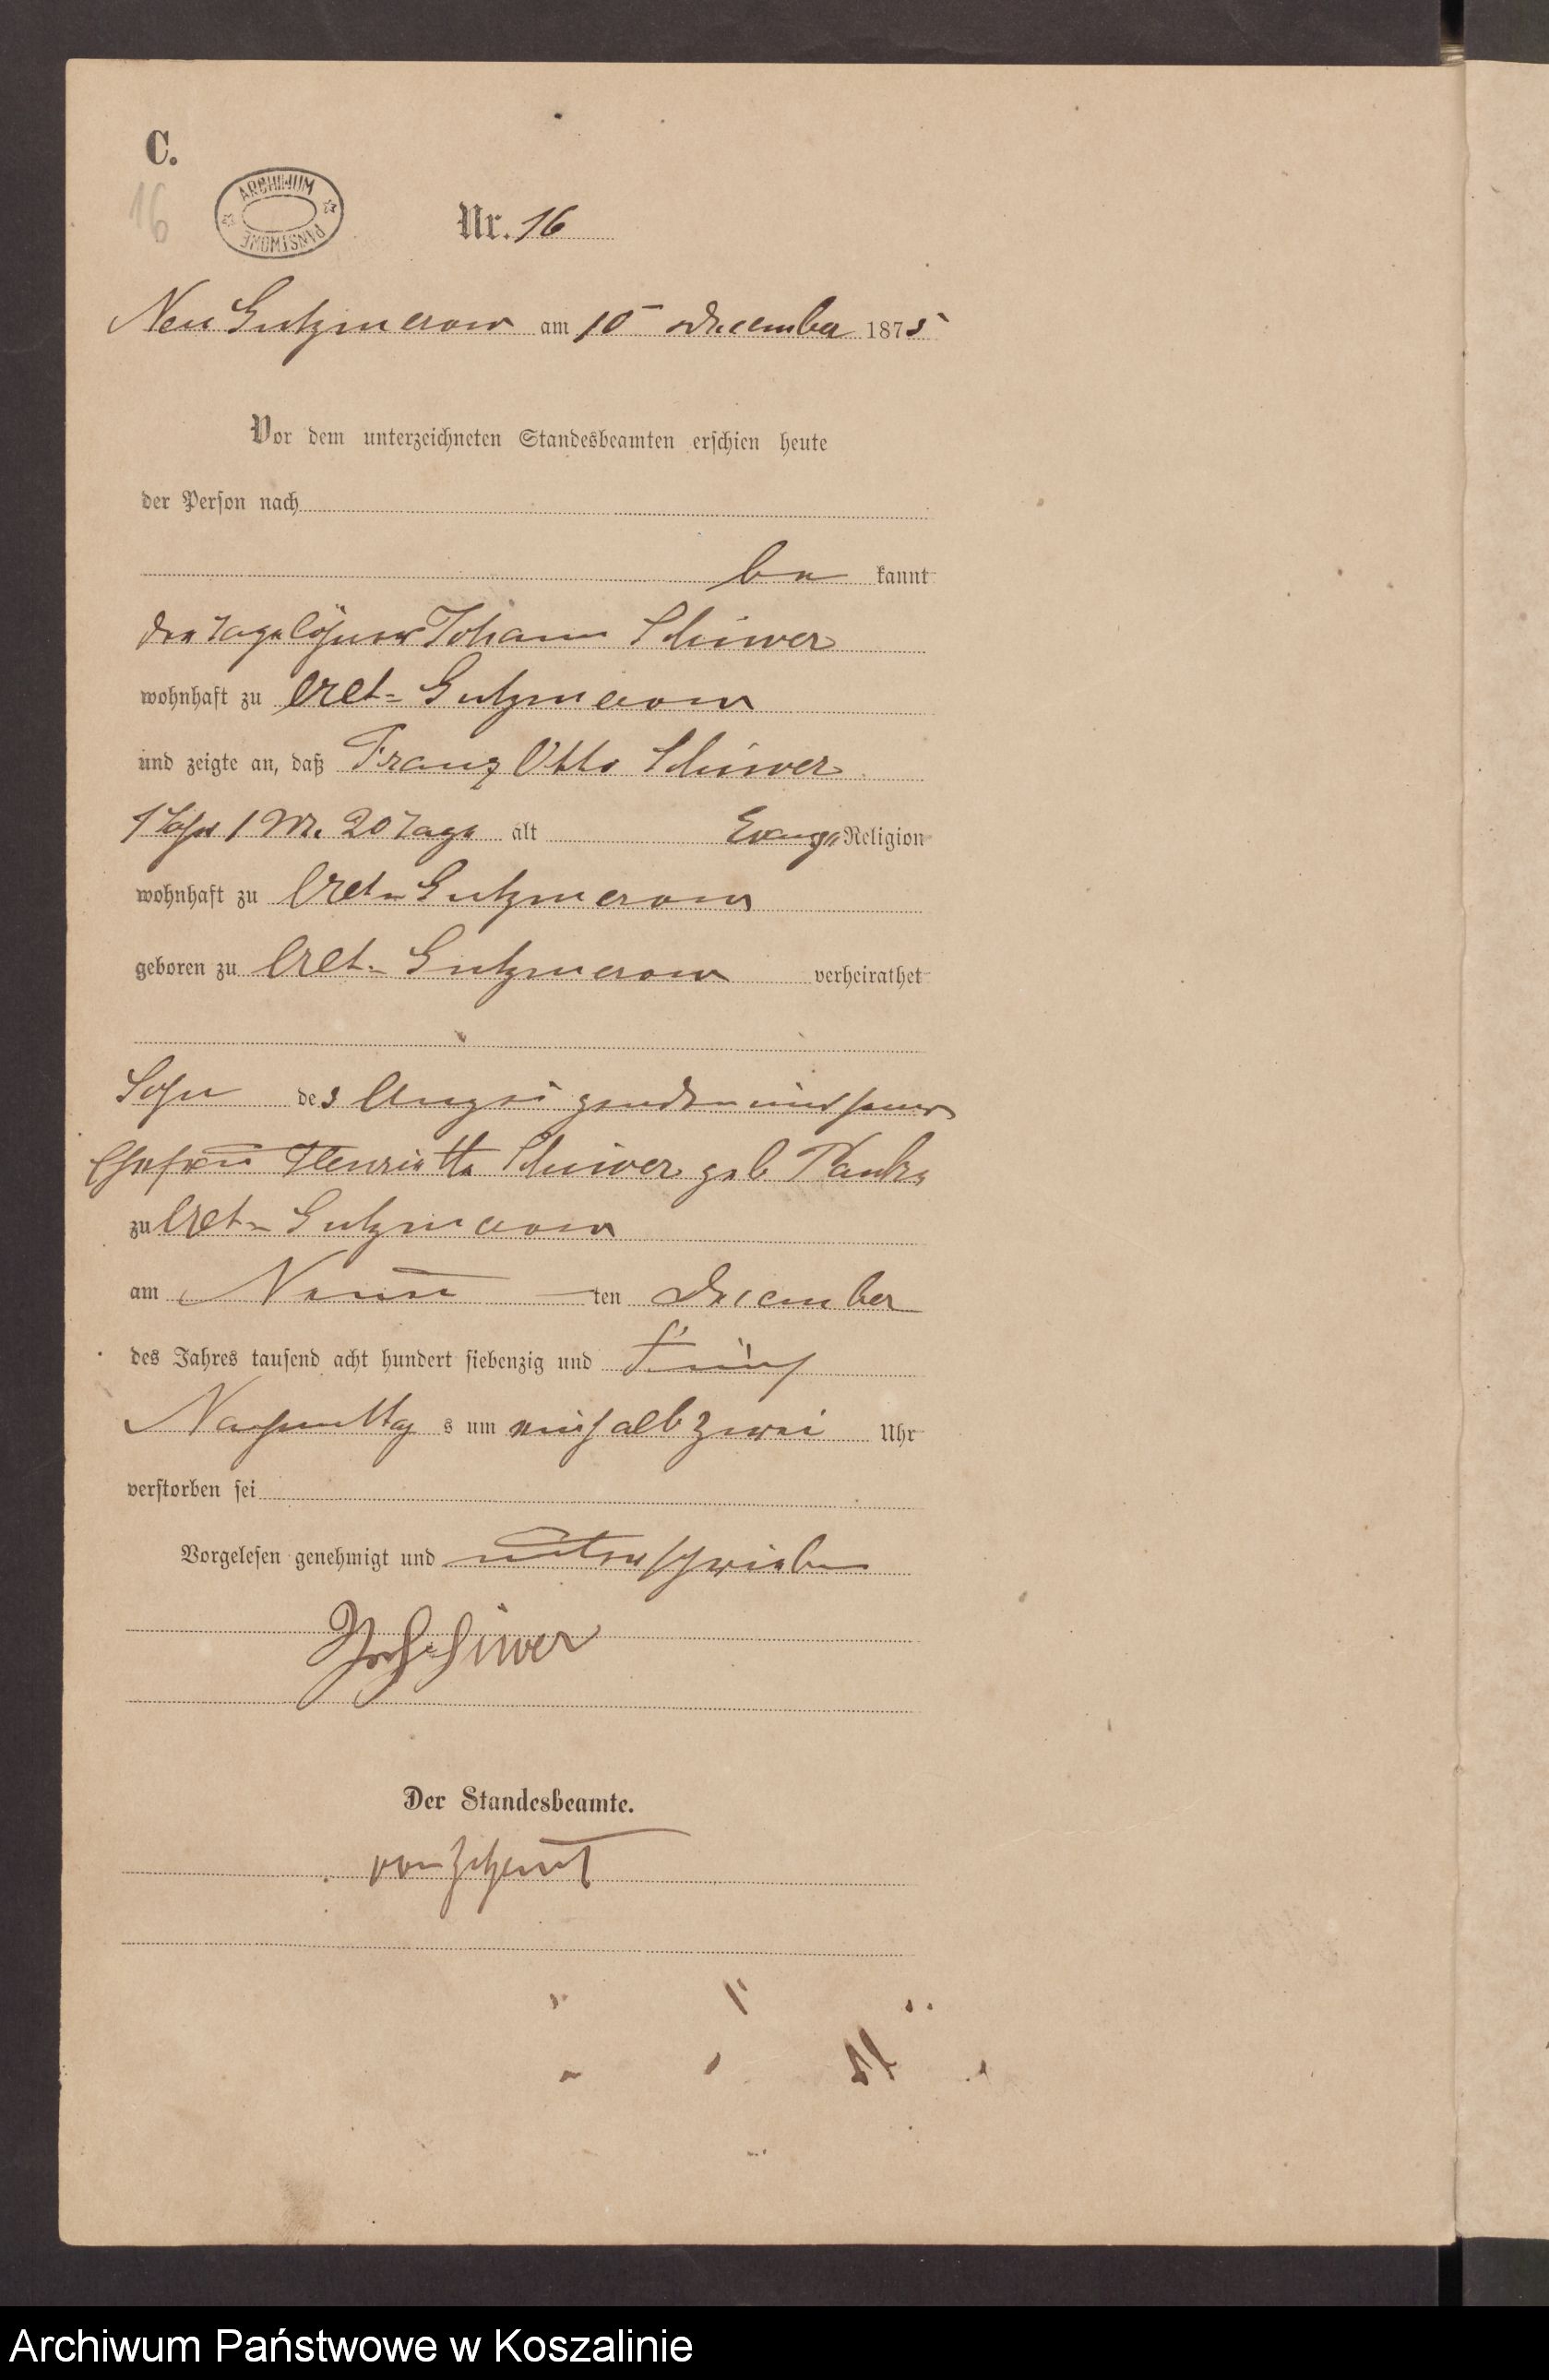 C.
16
ARCHIWUM PAŃSTWOWE
Nr. 16
Neu Gutzmerow am 10 December 1875
Vor dem unterzeichneten Standesbeamten erschien heute
der Person nach
be kannt
der Tagelöhner Johann Schiwer
wohnhaft zu Alt-Gutzmerow
und zeigte an, daß Franz Otto Schiwer
1 Jahr 1 M. 20 Tage alt Evang. Religion
wohnhaft zu Alt-Gutzmerow
geboren zu Alt-Gutzmerow verheirathet
Sohn des Anzeigenden und seiner
Ehefrau Henriette Schiwer geb
zu Alt-Gutzmerow
am Neun ten December
des Jahres tausend acht hundert siebenzig und fünf
Nachmittag s um ein halb zwei Uhr
verstorben sei
Vorgelesen genehmigt und unterschrieben
Joh Schiwer
Der Standesbeamte.
von
Archiwum Państwowe w Koszalinie